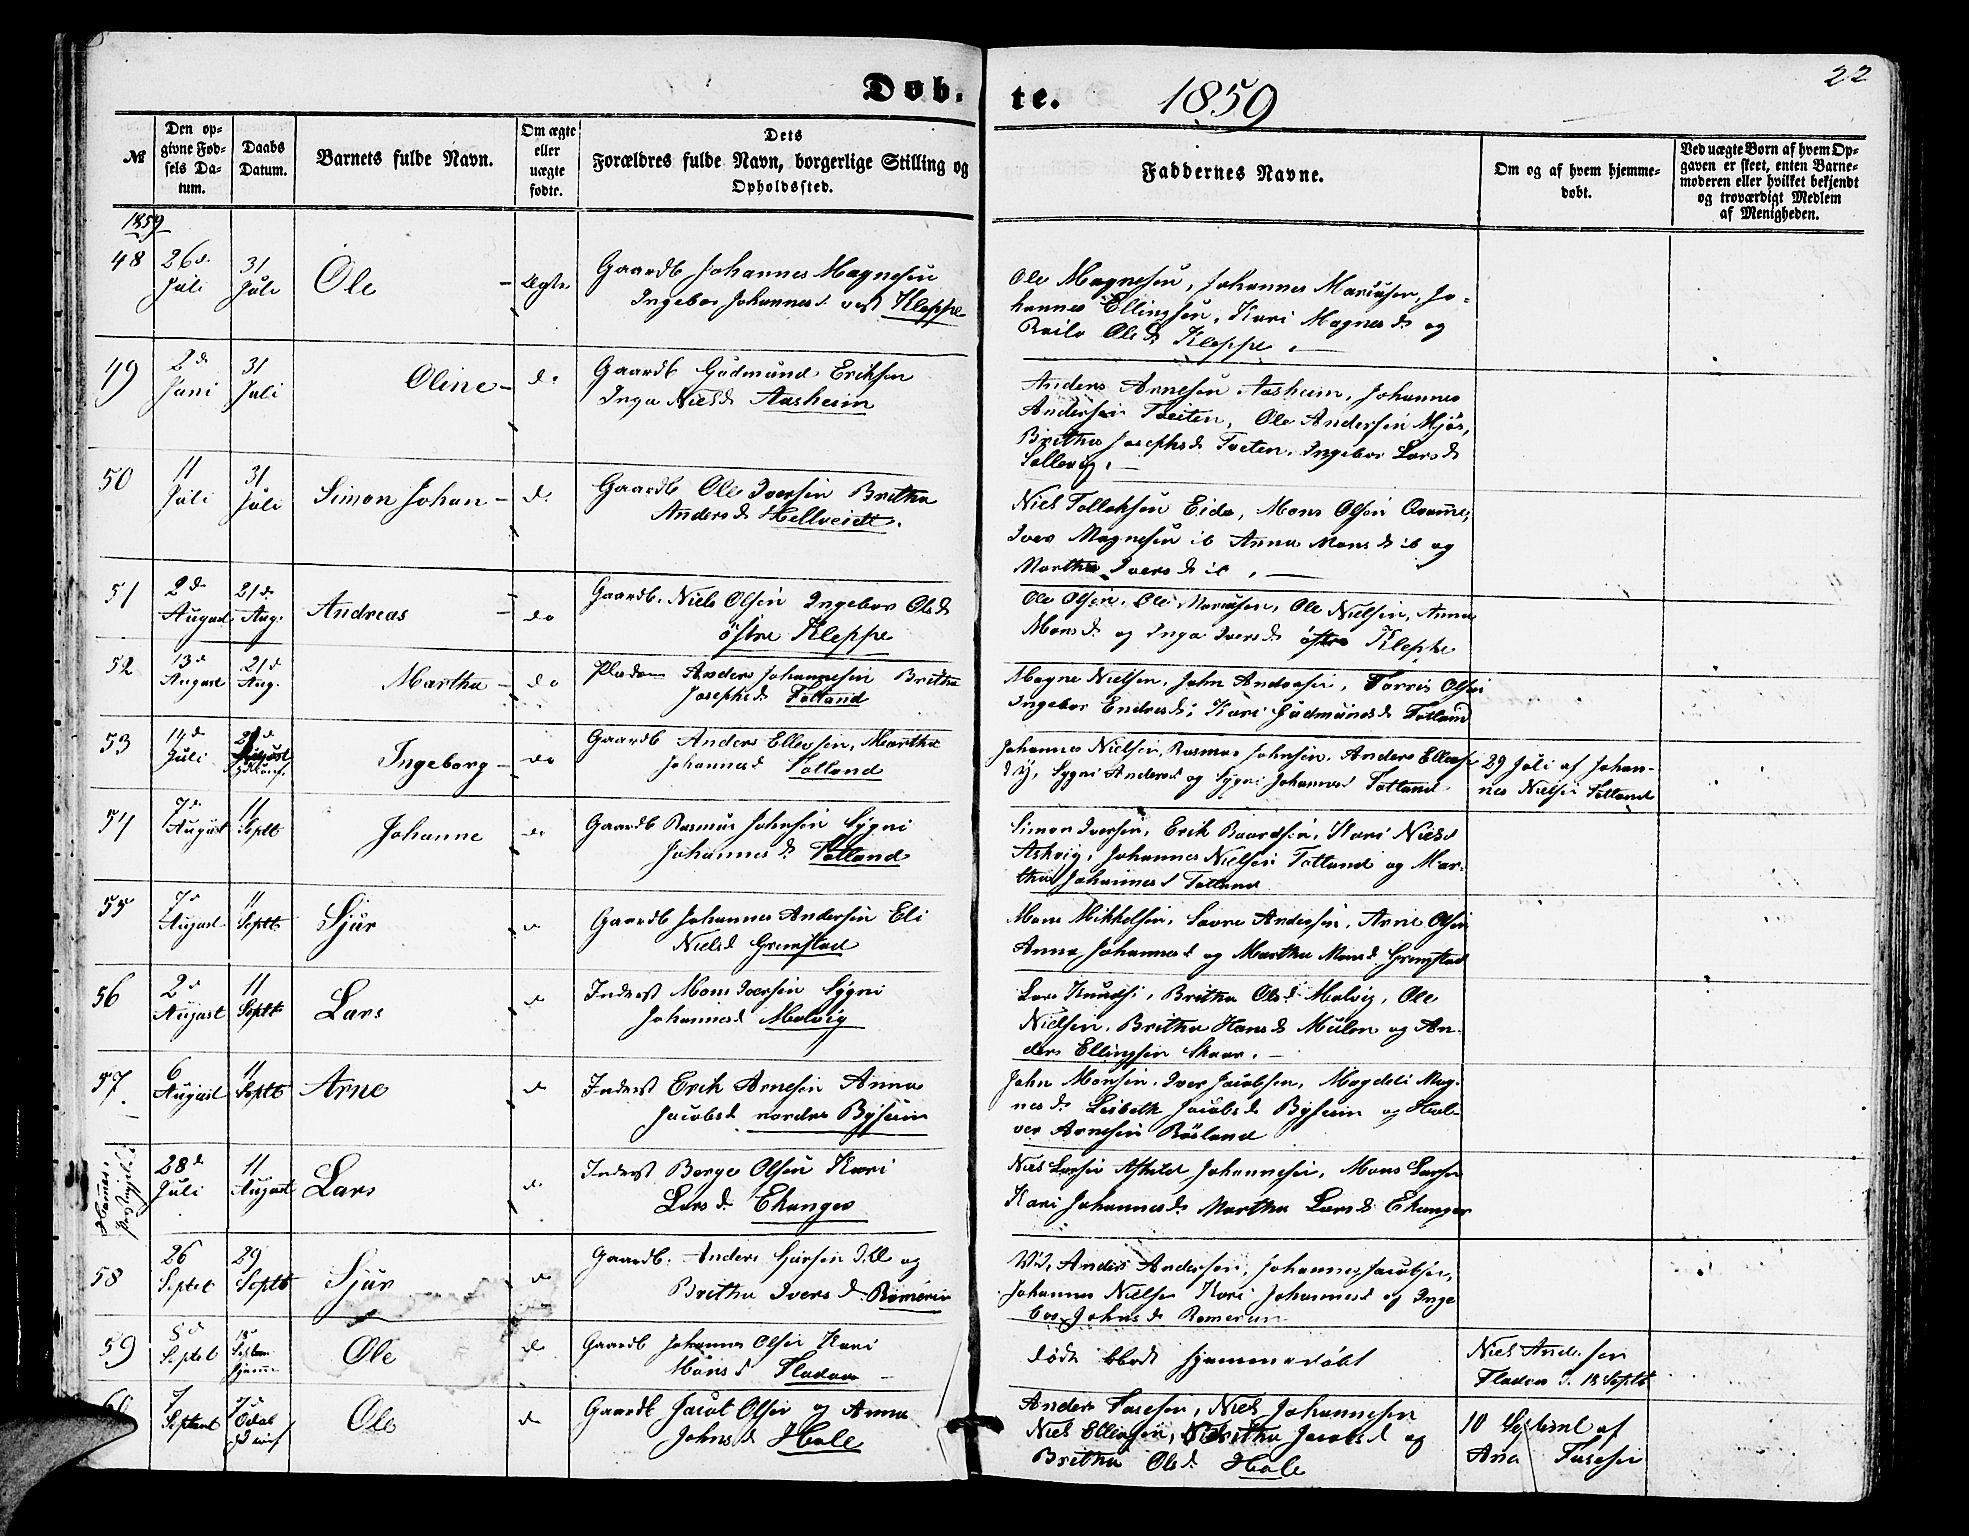 Døb-te. 1859 22
№
Den op-
givne Fød-
sels Da-
tum.
Daabs
Datum.
Barnets fulde Navn.
Om ægte
eller
uægte
fødte.
Dets
Forældres fulde Navn, borgerlige Stilling og
Opholdssted.
Faddernes Navne.
Om og af hvem hjemme-
døbt.
Ved uægte Børn af hvem Op-
gaven er skeet, enten Barne-
moderen eller hvilket bekjendt
og troværdigt Medlem
af Menigheden.
1859
48 26d. Juli 31 Juli Ole – Ægte
Gaardb Johannes Magnesen
Ingebor Johannesd vest Kleppe
Ole Magnesen, Johannes Mariusen, Jo-
hannes Ellingsen, Kari Magnesd og
Olsd Kleppe. –
49 2d Juni 31 Juli Oline – do
Gaardb Gudmund Eriksen
Inga Nielsd Aasheim
Anders Arnesen Aasheim, Johannes
Andersen Tveiten, Ole Andersen Mjøs,
Britha Josephsd Tveten, Ingebor Larsd
Sollevig. –
50 11 Juli 31 Juli Simon Johan – do
Gaardb Ole Iversen Britha
Andersd Hellveidt.
Niels Tollaksen Eide, Mons Olsen
Iver Magnesen ib Anna Monsd ib og
Martha Iversd ib. –
51 2d August 21d Aug. Andreas – do
Gaardb. Niels Olsen Ingebor Olsd
östre Kleppe
Ole Olsen, Ole Mariusen, Ole Nielsen, Anna
Monsd og Inga Iversd östre Kleppe
52 13d August 21d Aug. Martha – do
Pladsm Anders Johannesen Britha
Josephsd Totland
Magne Nielsen, John Andersen, Torris Olsen
Ingebor Endresd; Kari Gudmundsd Totland
53 14d Juli August Ingeborg – do
Gaardb Anders Ellevsen, Martha
Johannesd Totland
Johannes Nielsen, Rasmus Johnsen, Anders Ellevse
Sygni Andersd og Sygni Johannesd Totland
29 Juli af Johan-
nes Nielsen Totland
54 7d August 11 Septb Johanne do
Gaardb Rasmus Johnsen Sygni
Johannesd. Totland
Simon Iversen, Erik Baardsen, Kari Nielsd
Askvig, Johannes Nielsen Totland og Mar-
tha Johannesd Totland
55 7d August 11 Septb Sjur do
Gaardb Johannes Andersen Eli
Nielsd Grimstad
Mons Mikkelsen, Andersen, Arne Olsen
Anna Johannesd og Martha Monsd Grimstad
56 2d August 11 Septb Lars do
Inderst Mons Iversen Sygni
Johannesd Molvig
Lars Knudsen, Britha Olsd Molvig, Ole
Nielsen, Britha Hansd Mulen og An-
ders Ellingsen Skaar. –
57. 6 August 11 Septb Arne do
Inderst Erik Arnesen Anna
Jacobsd nordre Bysem
John Monsen, Iver Jacobsen, Magdeli Mag-
nesd. Lisbeth Jacobsd Bysem og Hal-
vor Arnesen Røsland
28d Juli 11 August Lars do
Inderst Børge Olsen Kari
Larsd. Ekanger
Niels Larsen Johannesen, Mons Larsen
Kari Johannesd. Martha Larsd Ekanger
58 26 Septbr 29 Septb Sjur do
Gaardb. Anders og
Britha Iversd. Rømeren
Anders Andersen, Johannes Jacobsen,
Johannes Nielsen Kari Johannesd og Inge
bor Johnsd Rømeren
59 8d Septbr 18 hjemme Ole do
Gaardb Johannes Olsen Kari
Monsd Fladøen –
døde hjemmedøbt
Niels Andersen
Fladøen d. 18 Septb
60 7 Septembr Ole do
Gaardb Jacob Olsen og Anna
Johnsd Hole
Anders Johannesen
Niels Ellevsen, Britha Jacobsd og
Britha Olsd. Hole
10 Septembr af